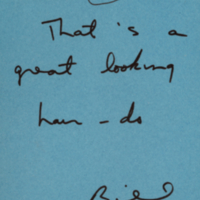 That is a
great looking
hair-do
Bill